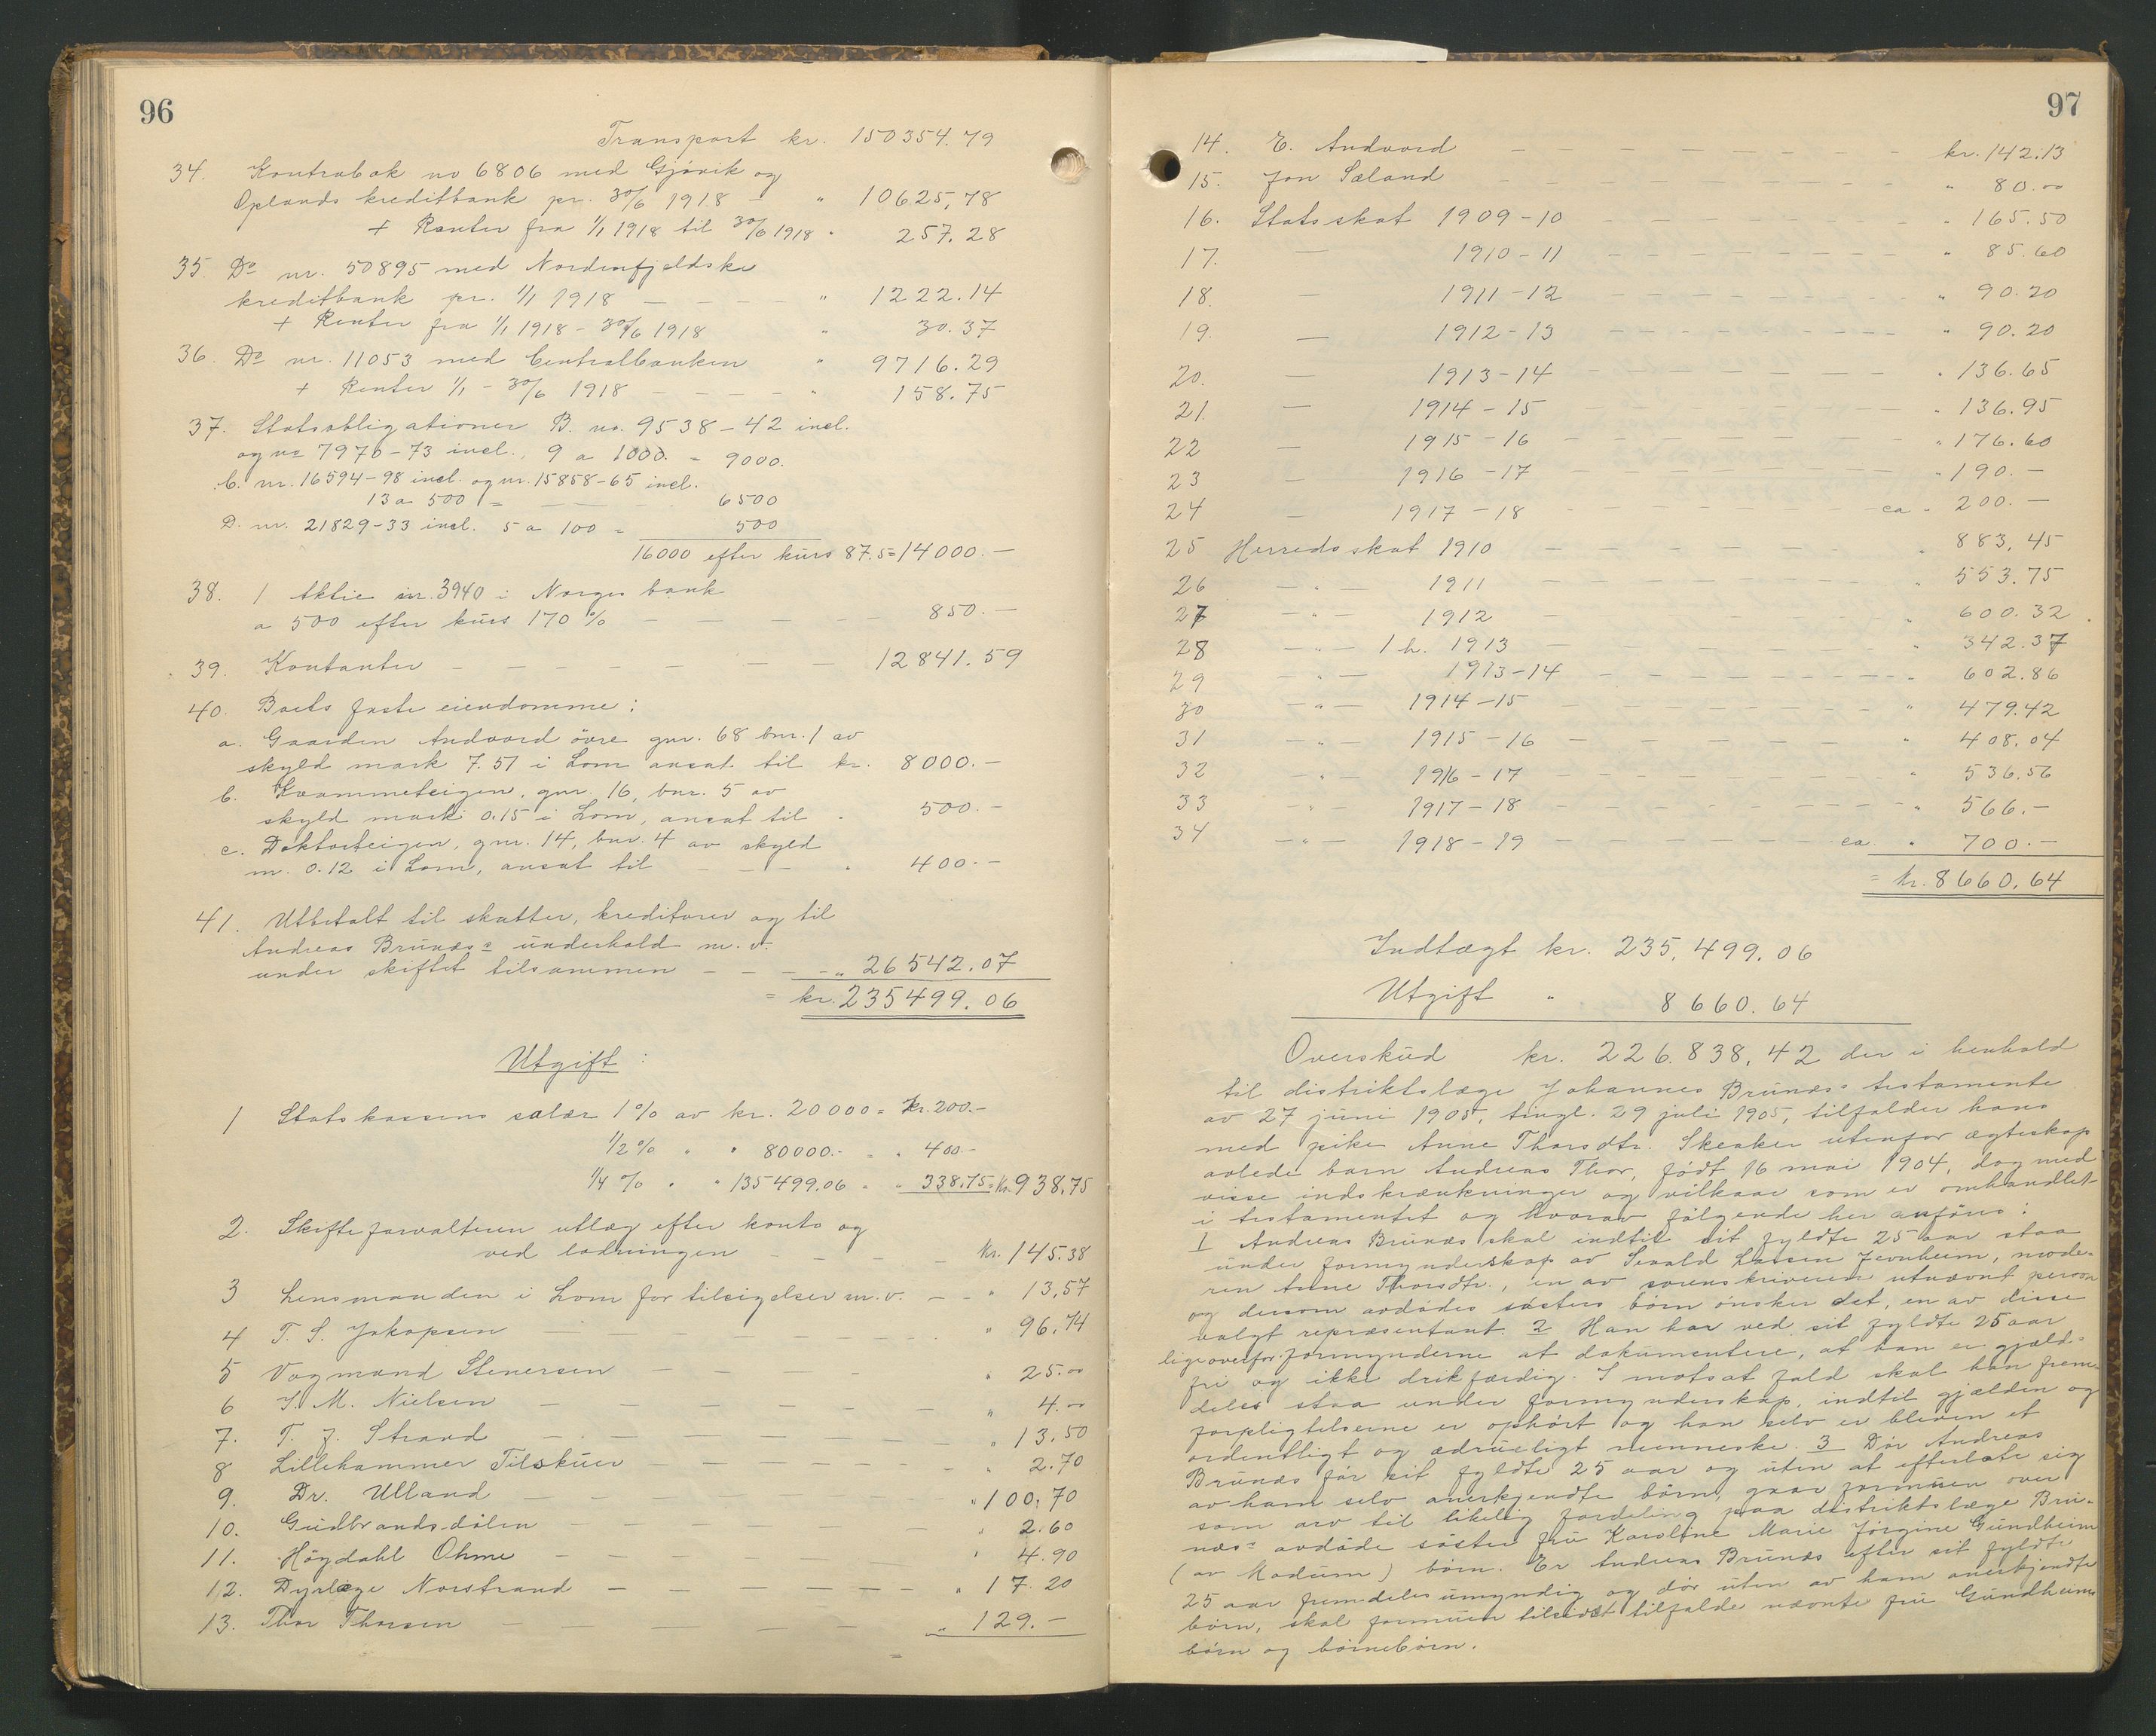 96
Transport kr. 150354.79
34. Kontrabok no 6806 med Gjövik og
Oplands kreditbank pr. 30/6 1918 - " 10625,78
+ Renter fra 1/1 1918 til 30/6 1918 " 257.28
35. Do nr. 50895 med Nordenfjeldske
kreditbank pr. 1/1 1918 — — — — " 1222.14
+ Renter fra 1/1 1918 - 30/6 1918 " 30.37
36. Do nr. 11053 med Centralbanken " 9716.29
+ Renter 1/1 - 30/6 1918 — — — — " 158.75
37. Statsobligationer B. no. 9538-42 incl.
og no 7970-73 incl., 9 a 1000. = 9000.
C. nr. 16594-98 incl. og nr. 15858-65 incl.
13 a 500 = — — — 6500
D. nr. 21829-33 incl. 5 a 100 = 500
16000 efter kurs 87.5 = 14000.—
38. 1 Aktie nr. 3940 i Norges bank
a 500 efter kurs 170 % — — — — — 850.—
39. Kontanter — — — — — — — 12841.59
40. Boets faste eiendomme:
a. Gaarden Andvord övre gnr. 68 bnr. 1 av
skyld mark 7.51 i Lom ansat til kr. 8000.—
b. Kvammeteigen, gnr. 16, bnr. 5 av
skyld mark 0.15 i Lom, ansat til " 500.—
c. Doktorteigen, gnr. 14, bnr. 4 av skyld
m. 0.12 i Lom, ansat til — — — " 400.—
41. Utbetalt til skatter, kreditorer og til
Andreas Brunæs's underhold m.v.
under skiftet tilsammen — — — — " 26542.07
= kr. 235499.06
Utgift:
1 Statskassens salær 1% av kr. 20000 = kr. 200.—
1/2 % " " 80000.- = " 400.-
1/4 % " " 135499.06 = " 338.75 = Kr. 938,75
2. Skifteforvalteren utlæg efter konto og
ved lodningen — — — Kr. 145.38
3 Lensmanden i Lom for tilsigelser m.v. — — " 13,57
4 T. S. Jakopsen — — — — — " 96,74
5 Vognmand Stenersen — — — — " 25.00
6 J. M. Nielsen — — — — — — " 4.00
7. T. J. Strand — — — — — — " 13.50
8 Lillehammer Tilskuer — — — — — " 2.70
9. Dr. Ulland — — — — — — " 100.70
10. Gudbrandsdölen — — — — — " 2.60
11. Högdahl Ohme — — — — — " 4.90
12. Dyrlæge Norstrand — — — — — " 17.20
13. Thor Thorsen — — — — — " 129.—
97
14. E. Andvord — — — — — — kr. 142.13
15. Jon Sæland — — — — — — " 80.00
16. Statsskat 1909-10 — — — — — " 165.50
17. — 1910-11 — — — — — " 85.60
18. — 1911-12 — — — — — " 90.20
19. — 1912-13 — — — — — " 90.20
20. — 1913-14 — — — — — " 136.65
21. — 1914-15 — — — — — " 136.95
22 — 1915-16 — — — — — " 176.60
23 — 1916-17 — — — — — " 190.—
24 — 1917-18 — — — — — ca " 200.—
25 Herredsskat 1910 — — — — — " 883,45
26 — " — 1911 — — — — — " 553.75
27 — " — 1912 — — — — — " 600.32
28 — " — 1 h. 1913 — — — — — " 342.37
29 — " — 1913-14 — — — — — " 602.86
30 — " — 1914-15 — — — — — " 479.42
31 — " — 1915-16 — — — — — " 408.04
32 — " — 1916-17 — — — — — " 536.56
33 — " — 1917-18 — — — — — " 566.—
34 — " — 1918-19 — — — — — ca. " 700.—
= kr. 8660,64
Indtægt kr. 235,499.06
Utgift " 8660.64
Overskud kr. 226.838,42 der i henhold
til distriktslæge Johannes Brunæs's testamente
av 27 juni 1905, tingl. 29 juli 1905, tilfalder hans
med pike Anne Thorsdtr. Skeaker utenfor ægteskap
avlede barn Andreas Thor, födt 16 mai 1904, dog med
visse indskrænkninger og vilkaar som er omhandlet
i testamentet og hvorav fölgende her anföres:
1 Andreas Brunæs skal indtil sit fyldte 25 aar staa
under formynderskap av Sevald Lassen Jevnheim, mode-
ren Anne Thorsdtr., en av sorenskriveren utnævnt person
og dersom avdödes sösters börn önsker det, en av disse
valgt repræsentant. 2 Han har ved sit fyldte 25 aar
ligeoverfor formynderne at dokumentere, at han er gjæld-
fri og ikke drikfærdig. I motsat fald skal han frem-
deles staa under formynderskap, indtil gjælden og
forpligtelserne er ophört og han selv er bleven et
ordentligt og ædrueligt menneske. 3 Dör Andreas
Brunæs för sit fyldte 25 aar og uten at efterlate sig
av ham selv anerkjendte börn, gaar formuen over
som arv til likelig fordeling paa distriktslæge Bru-
næs's avdöde söster fru Karoline Marie Jörgine Gundheim
(av Modum) börn. Er Andreas Brunæs efter sit fyldte
25 aar fremdeles umyndig og dör uten av ham anerkjendte
börn, skal formuen tilsidst tilfalde nævnte fru Gundheims
börn og börnebörn.